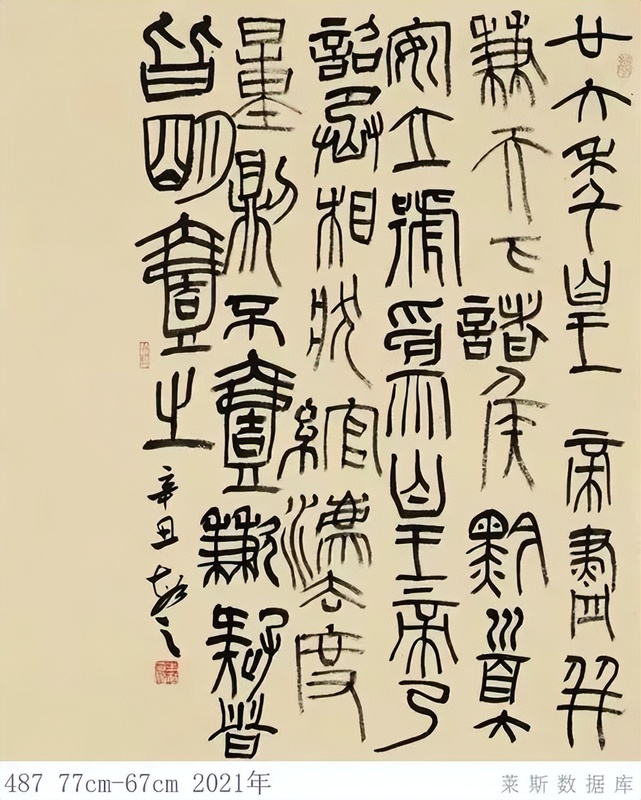 廿六年皇帝盡并
兼天下諸侯黔首大
安立號為皇帝乃
詔丞相狀綰灋度
量則不壹歉疑者
皆明壹之
辛丑
487 77cm-67cm 2021年
莱斯数据库